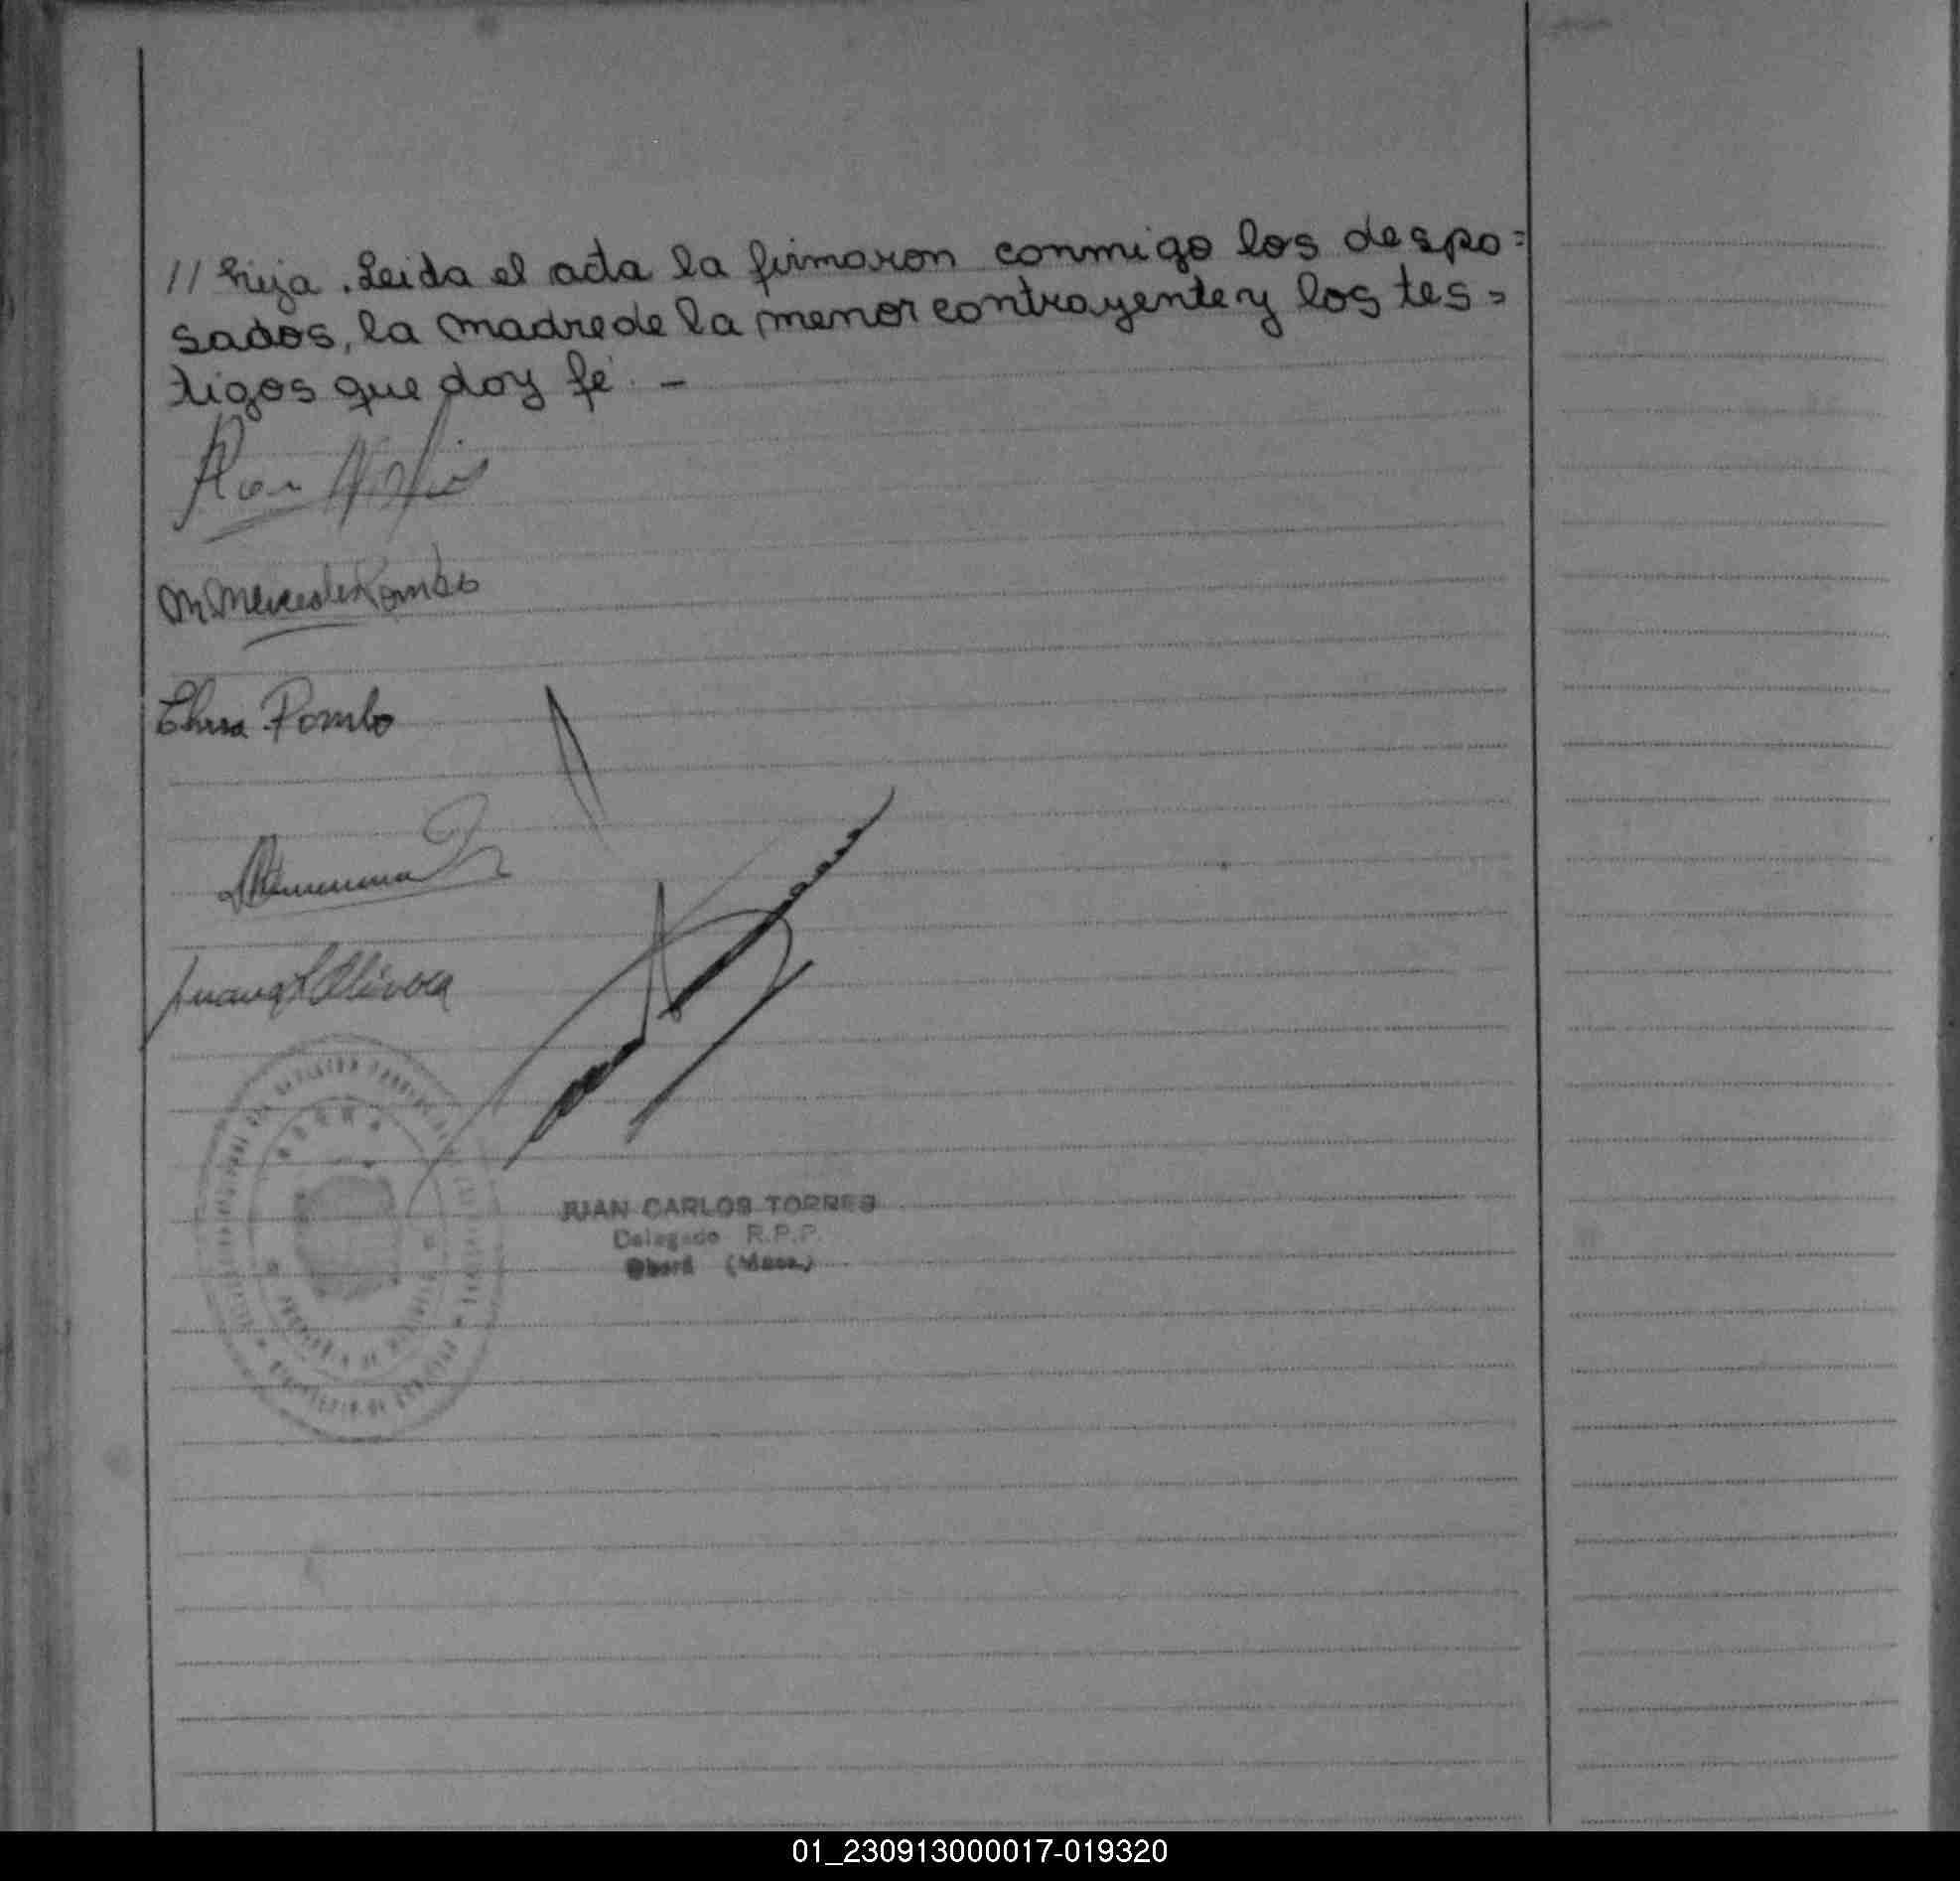 // hija. Leida el acta la firmaron conmigo los despo=
sados, la madre de la menor contrayente y los tes=
tigos que doy fé. -
M Mercedes Pombo
Elisa Pombo
Juana Olivera
JUAN CARLOS TORRES
Delegado R.P.P.
Oberá (Mnes.)
01_230913000017-019320